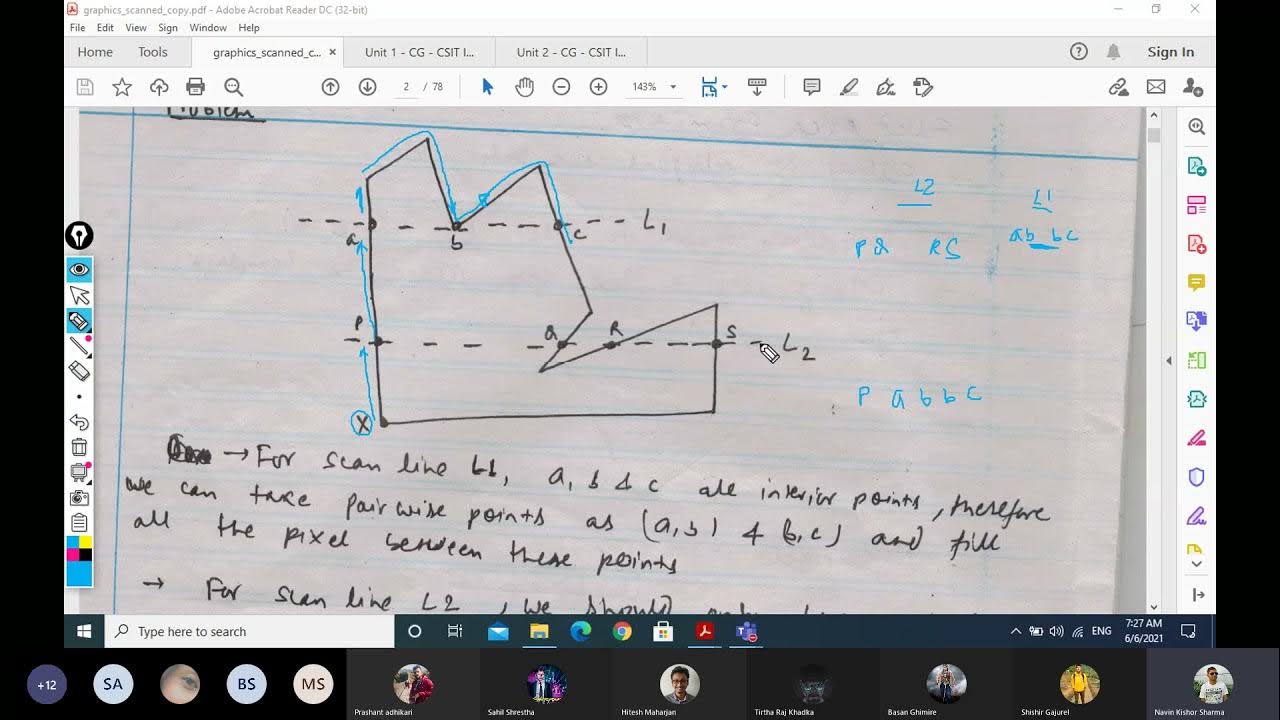 graphics_scanned_copy.pdf - Adobe Acrobat Reader DC (32-bit)
File Edit View Sign Window Help
Home Tools graphics_scanned_c... × Unit 1 - CG - CSIT I... Unit 2 - CG - CSIT I... Sign In
2 / 78 143%
Problem
L2 L1
a b c L1
PQ RS ab bc
P Q R S L2
P a b b c
X
→ For scan line L1, a, b & c are interior points, therefore
we can take pairwise points as (a,b) & (b,c) and fill
all the pixel between these points
→ For scan line L2, we should
Type here to search
ENG 7:27 AM
6/6/2021
+12 SA BS MS
Prashant adhikari Sahil Shrestha Hitesh Maharjan Tirtha Raj Khadka Basan Ghimire Shishir Gajurel Navin Kishor Sharma